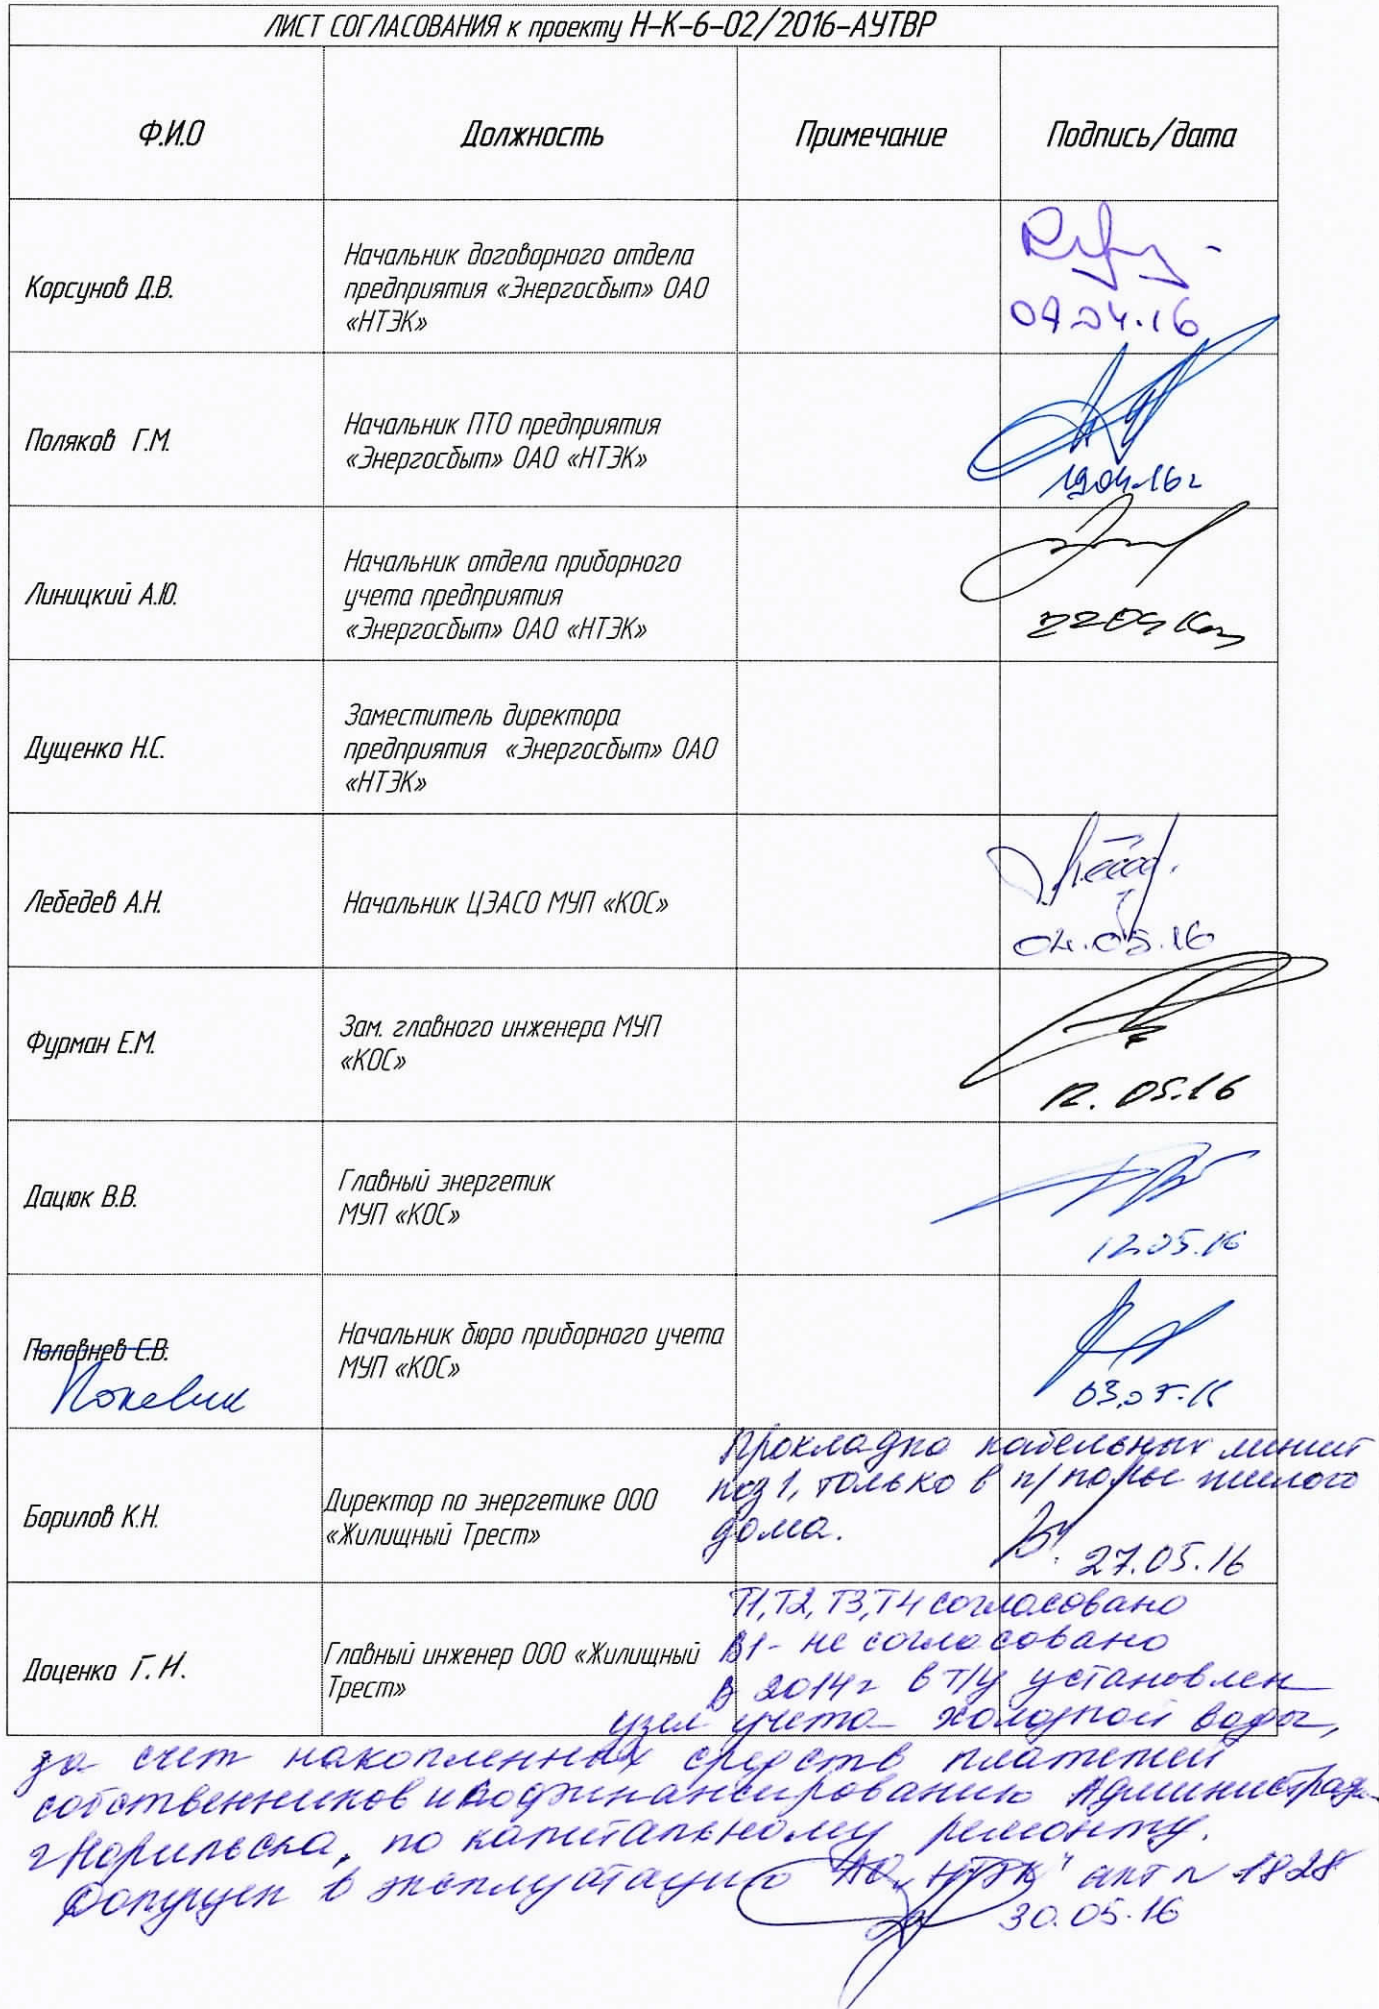 ЛИСТ СОГЛАСОВАНИЯ к проекту Н-К-6-02/2016-АУТВР
Ф.И.О
Должность
Примечание
Подпись/дата
Корсунов Д.В.
Начальник договорного отдела
предприятия «Энергосбыт» ОАО
«НТЭК»
04.16
Поляков Г.М.
Начальник ПТО предприятия
«Энергосбыт» ОАО «НТЭК»
19.04.16г
Линицкий А.Ю.
Начальник отдела приборного
учета предприятия
«Энергосбыт» ОАО «НТЭК»
Дущенко Н.С.
Заместитель директора
предприятия «Энергосбыт» ОАО
«НТЭК»
Лебедев А.Н.
Начальник ЦЭАСО МУП «КОС»
04.05.16
Фурман Е.М.
Зам. главного инженера МУП
«КОС»
12.05.16
Дацюк В.В.
Главный энергетик
МУП «КОС»
12.05.16
Половнев С.В.
Начальник бюро приборного учета
МУП «КОС»
03.05.16
Борилов К.Н.
Директор по энергетике ООО
«Жилищный Трест»
Прокладка кабельных линий
поз 1, только в п/полье жилого
дома.
27.05.16
Доценко Г.И.
Главный инженер ООО «Жилищный
Трест»
Т1, Т2, Т3, Т4 согласовано
В1 - не согласовано
В 2014г в т/у установлен
узел учета холодной воды,
за счет накопленных средств платежей
собственников и софинансированию Администрац.
г Норильска, по капитальному ремонту.
Допущен в эксплуатацию АО „НТЭК" акт N 1828
30.05.16